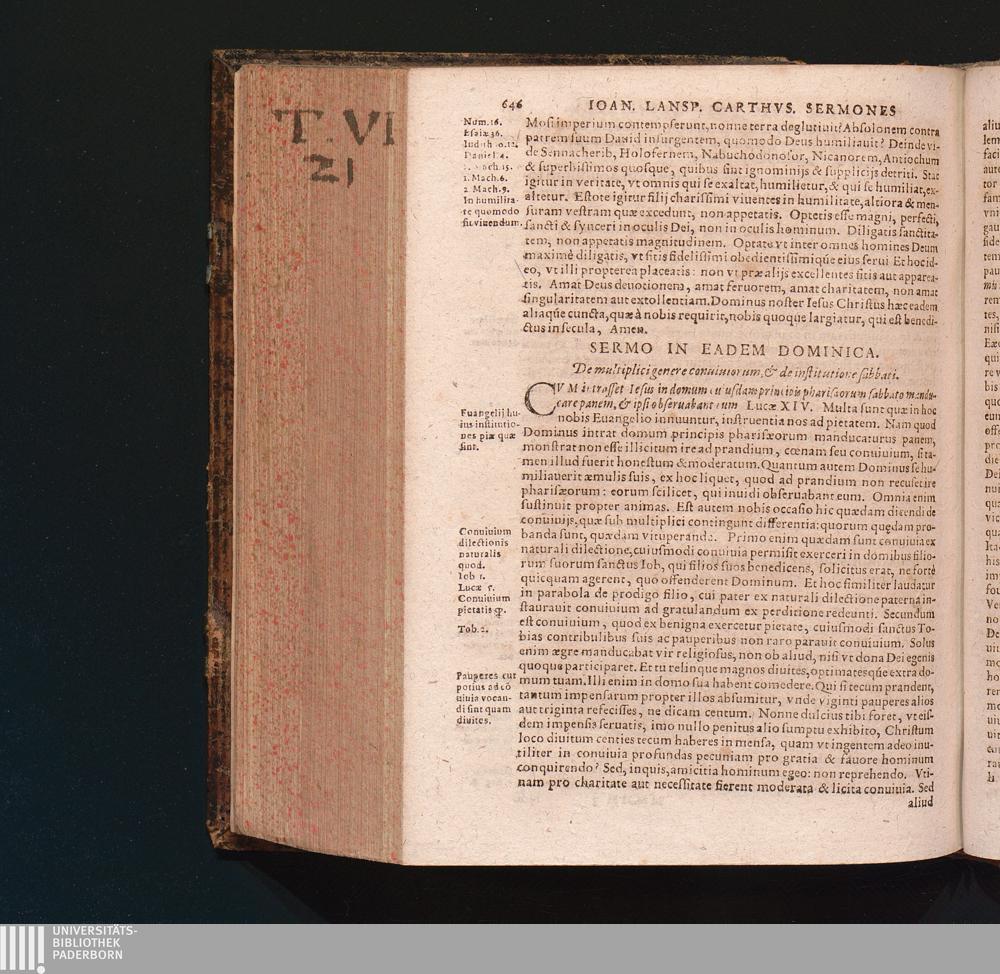 T. VI
21
646 IOAN. LANSP. CARTHVS. SERMONES
Num. 16.
Esaiæ 36.
Iudith 10. 12.
Daniel. 4.
1. Mach. 6.
2 Mach. 9.
In humilita
te quomodo
sit viuendum.
Mosi imperium contempserunt, nonne terra deglutiuit? Absolonem contra
patrem suum Dauid insurgentem, quomodo Deus humiliauit? Deinde vi-
de Sennacherib, Holofernem, Nabuchodonosor, Nicanorem, Antiochum
& superbissimos quosque, quibus sint ignominijs & supplicijs detriti. Stat
igitur in veritate, vt omnis qui se exaltat, humilietur, & qui se humiliat, ex-
altetur. Estote igitur filij charissimi viuentes in humilitate, altiora & men-
suram vestram quæ excedunt, non appetatis. Optetis esse magni, perfecti,
sancti & synceri in oculis Dei, non in oculis hominum. Diligatis sanctita-
tem, non appetatis magnitudinem. Optate vt inter omnes homines Deum
maximè diligatis, vt sitis fidelissimi obedientissimique eius serui Et hoc id-
eo, vt illi propterea placeatis: non vt præ alijs excellentes sitis aut apparea-
tis. Amat Deus deuotionem, amat feruorem, amat charitatem, non amat
singularitatem aut extollentiam. Dominus noster Iesus Christus hæc eadem
aliaqúe cuncta, quæ à nobis requirit, nobis quoque largiatur, qui est benedi-
ctus in secula, Amen.
SERMO IN EADEM DOMINICA.
De multiplici genere conuiuiorum, & de institutione sabbati.
Euangelij hu-
ius institutio-
nes piæ quæ
sint.
CVM intrasset Iesus in domum cuiusdam principis pharisæorum sabbato mandu-
care panem, & ipsi obseruabant eum Lucæ XIV. Multa sunt quæ in hoc
nobis Euangelio innuuntur, instruentia nos ad pietatem. Nam quod
Dominus intrat domum principis pharisæorum manducaturus panem,
monstrat non esse illicitum ire ad prandium, cœnam seu conuiuium, si ta-
men illud fuerit honestum & moderatum. Quantum autem Dominus se hu-
miliauerit æmulis suis, ex hoc liquet, quod ad prandium non recuset ire
pharisæorum: eorum scilicet, qui inuidi obseruabant eum. Omnia enim
sustinuit propter animas. Est autem nobis occasio hic quædam dicendi de
conuiuijs, quæ sub multiplici contingunt differentia: quorum quędam pro-
banda sunt, quædam vituperanda. Primo enim quædam sunt conuiuia ex
naturali dilectione, cuiusmodi conuiuia permisit exerceri in domibus filio-
rum suorum sanctus Iob, qui filios suos benedicens, solicitus erat, ne fortè
quicquam agerent, quo offenderent Dominum. Et hoc similiter laudatur
in parabola de prodigo filio, cui pater ex naturali dilectione paterna in-
staurauit conuiuium ad gratulandum ex perditione redeunti. Secundum
est conuiuium, quod ex benigna exercetur pietate, cuiusmodi sanctus To-
bias contribulibus suis ac pauperibus non raro parauit conuiuium. Solus
enim ægre manducabat vir religiosus, non ob aliud, nisi vt dona Dei egenis
quoque participaret. Et tu relinque magnos diuites, optimatesqúe extra do-
mum tuam. Illi enim in domo sua habent comedere. Qui si tecum prandent,
tantum impensarum propter illos absumitur, vnde viginti pauperes alios
aut triginta refecisses, ne dicam centum. Nonne dulcius tibi foret, vt eis-
dem impensis seruatis, imo nullo penitus alio sumptu exhibito, Christum
loco diuitum centies tecum haberes in mensa, quam vt ingentem adeo inu-
tiliter in conuiuia profundas pecuniam pro gratia & fauore hominum
conquirendo? Sed, inquis, amicitia hominum egeo: non reprehendo. Vti-
nam pro charitate aut necessitate fierent moderata & licita conuiuia. Sed
aliud
Conuiuium
dilectionis
naturalis
quod.
Iob 1.
Lucæ 5.
Conuiuium
pietatis
Tob. 2.
Pauperes cur
potius ad cō
uiuia vocan-
di sint quam
diuites.
UNIVERSITÄTS-
BIBLIOTHEK
PADERBORN